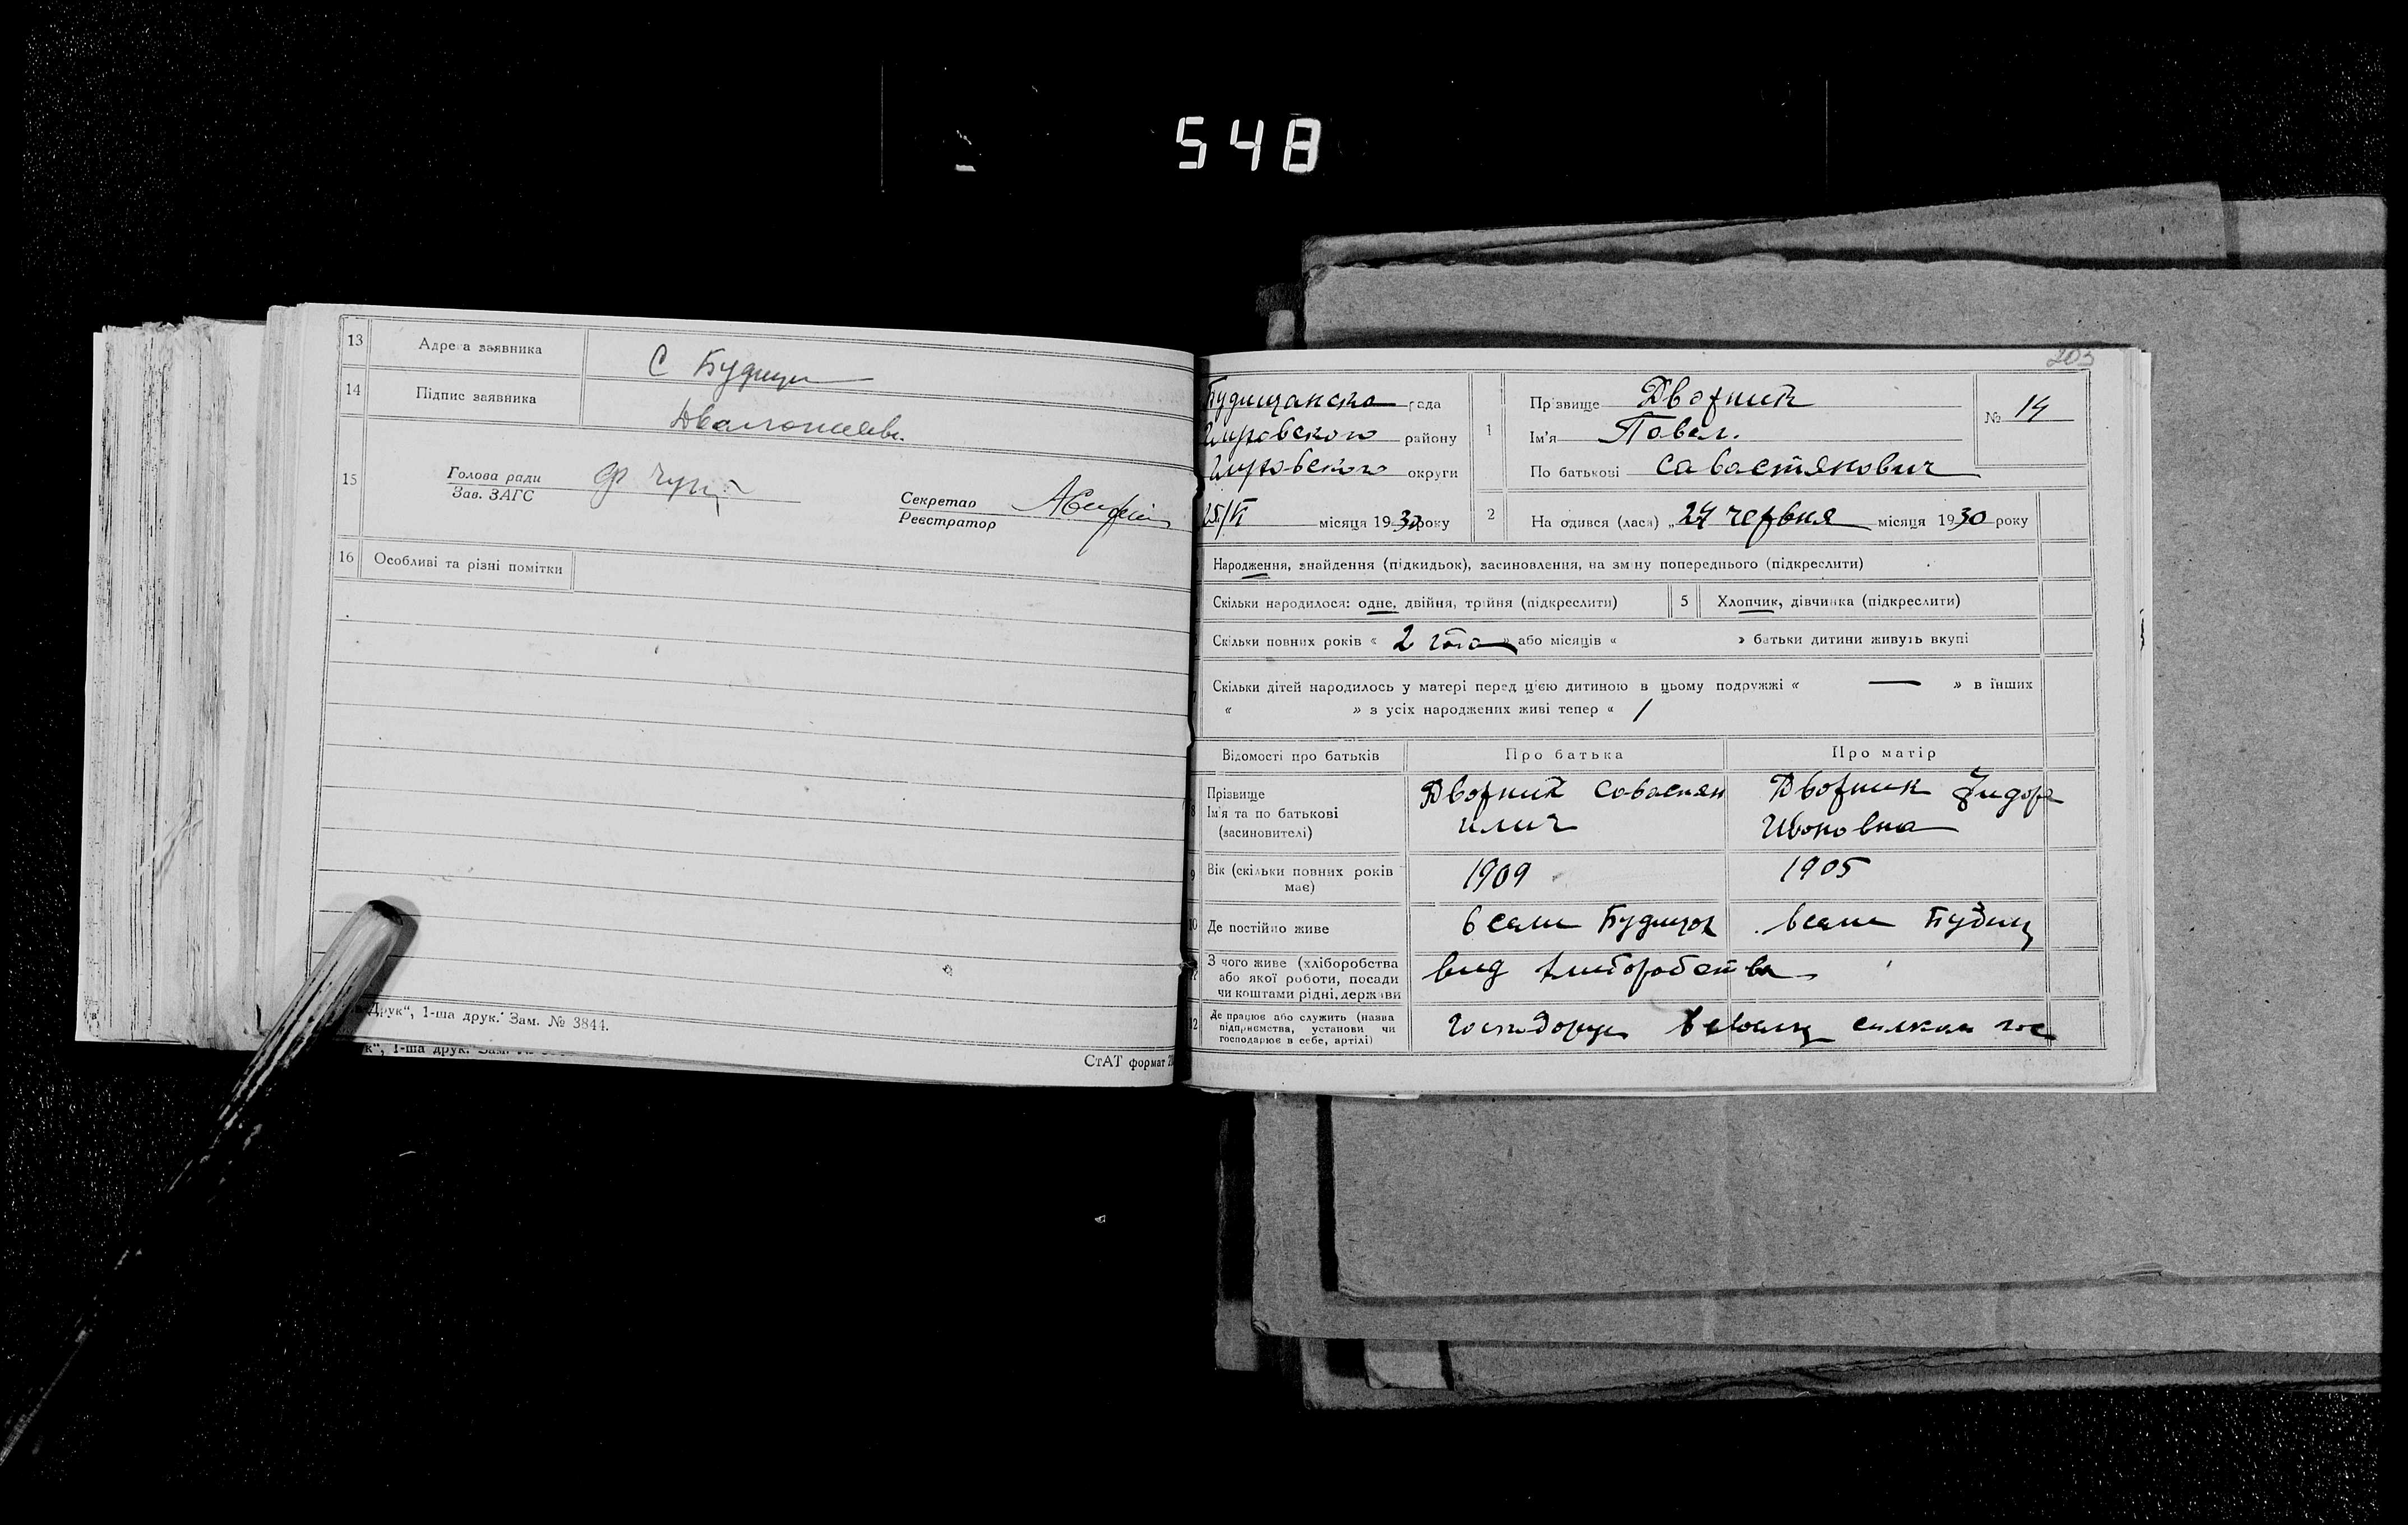 548
13 Адреса заявника С Будищи
14 Підпис заявника
15 Голова ради
Зав. ЗАГС
Секретар
Реєстратор
16 Особливі та різні помітки
Друк", 1-ша друк. Зам. № 3844.
к", 1-ша друк. Зам.
СтАТ формат
203
Будищанска рада
району
округи
25/VI місяця 1930 року
1 Прізвище Дворник
Ім'я Павел.
По батькові Савастянович
№ 14
2 Народився (лася) „24 червня місяця 1930 року
Народження, знайдення (підкидьок), засиновлення, на зміну попереднього (підкреслити)
Скільки народилося: одне, двійня, трійня (підкреслити)
5 Хлопчик, дівчинка (підкреслити)
Скільки повних років « 2 года » або місяців « » батьки дитини живуть вкупі
Скільки дітей народилось у матері перед цією дитиною в цьому подружжі « — » в інших
« » з усіх народжених живі тепер « 1
Відомості про батьків Про батька Про матір
8 Прізвище
Ім'я та по батькові
(засиновителі)
Дворник Савастян
Илич
Дворник
Ивановна
9 Вік (скільки повних років
має)
1909 1905
10 Де постійно живе в сели Будищах в сели Будищ
З чого живе (хліборобства
або якої роботи, посади
чи коштами рідні, держави
вид хлиборобства
12 Де працює або служить (назва
підприємства, установи чи
господарює в себе, артілі)
господарує в своему